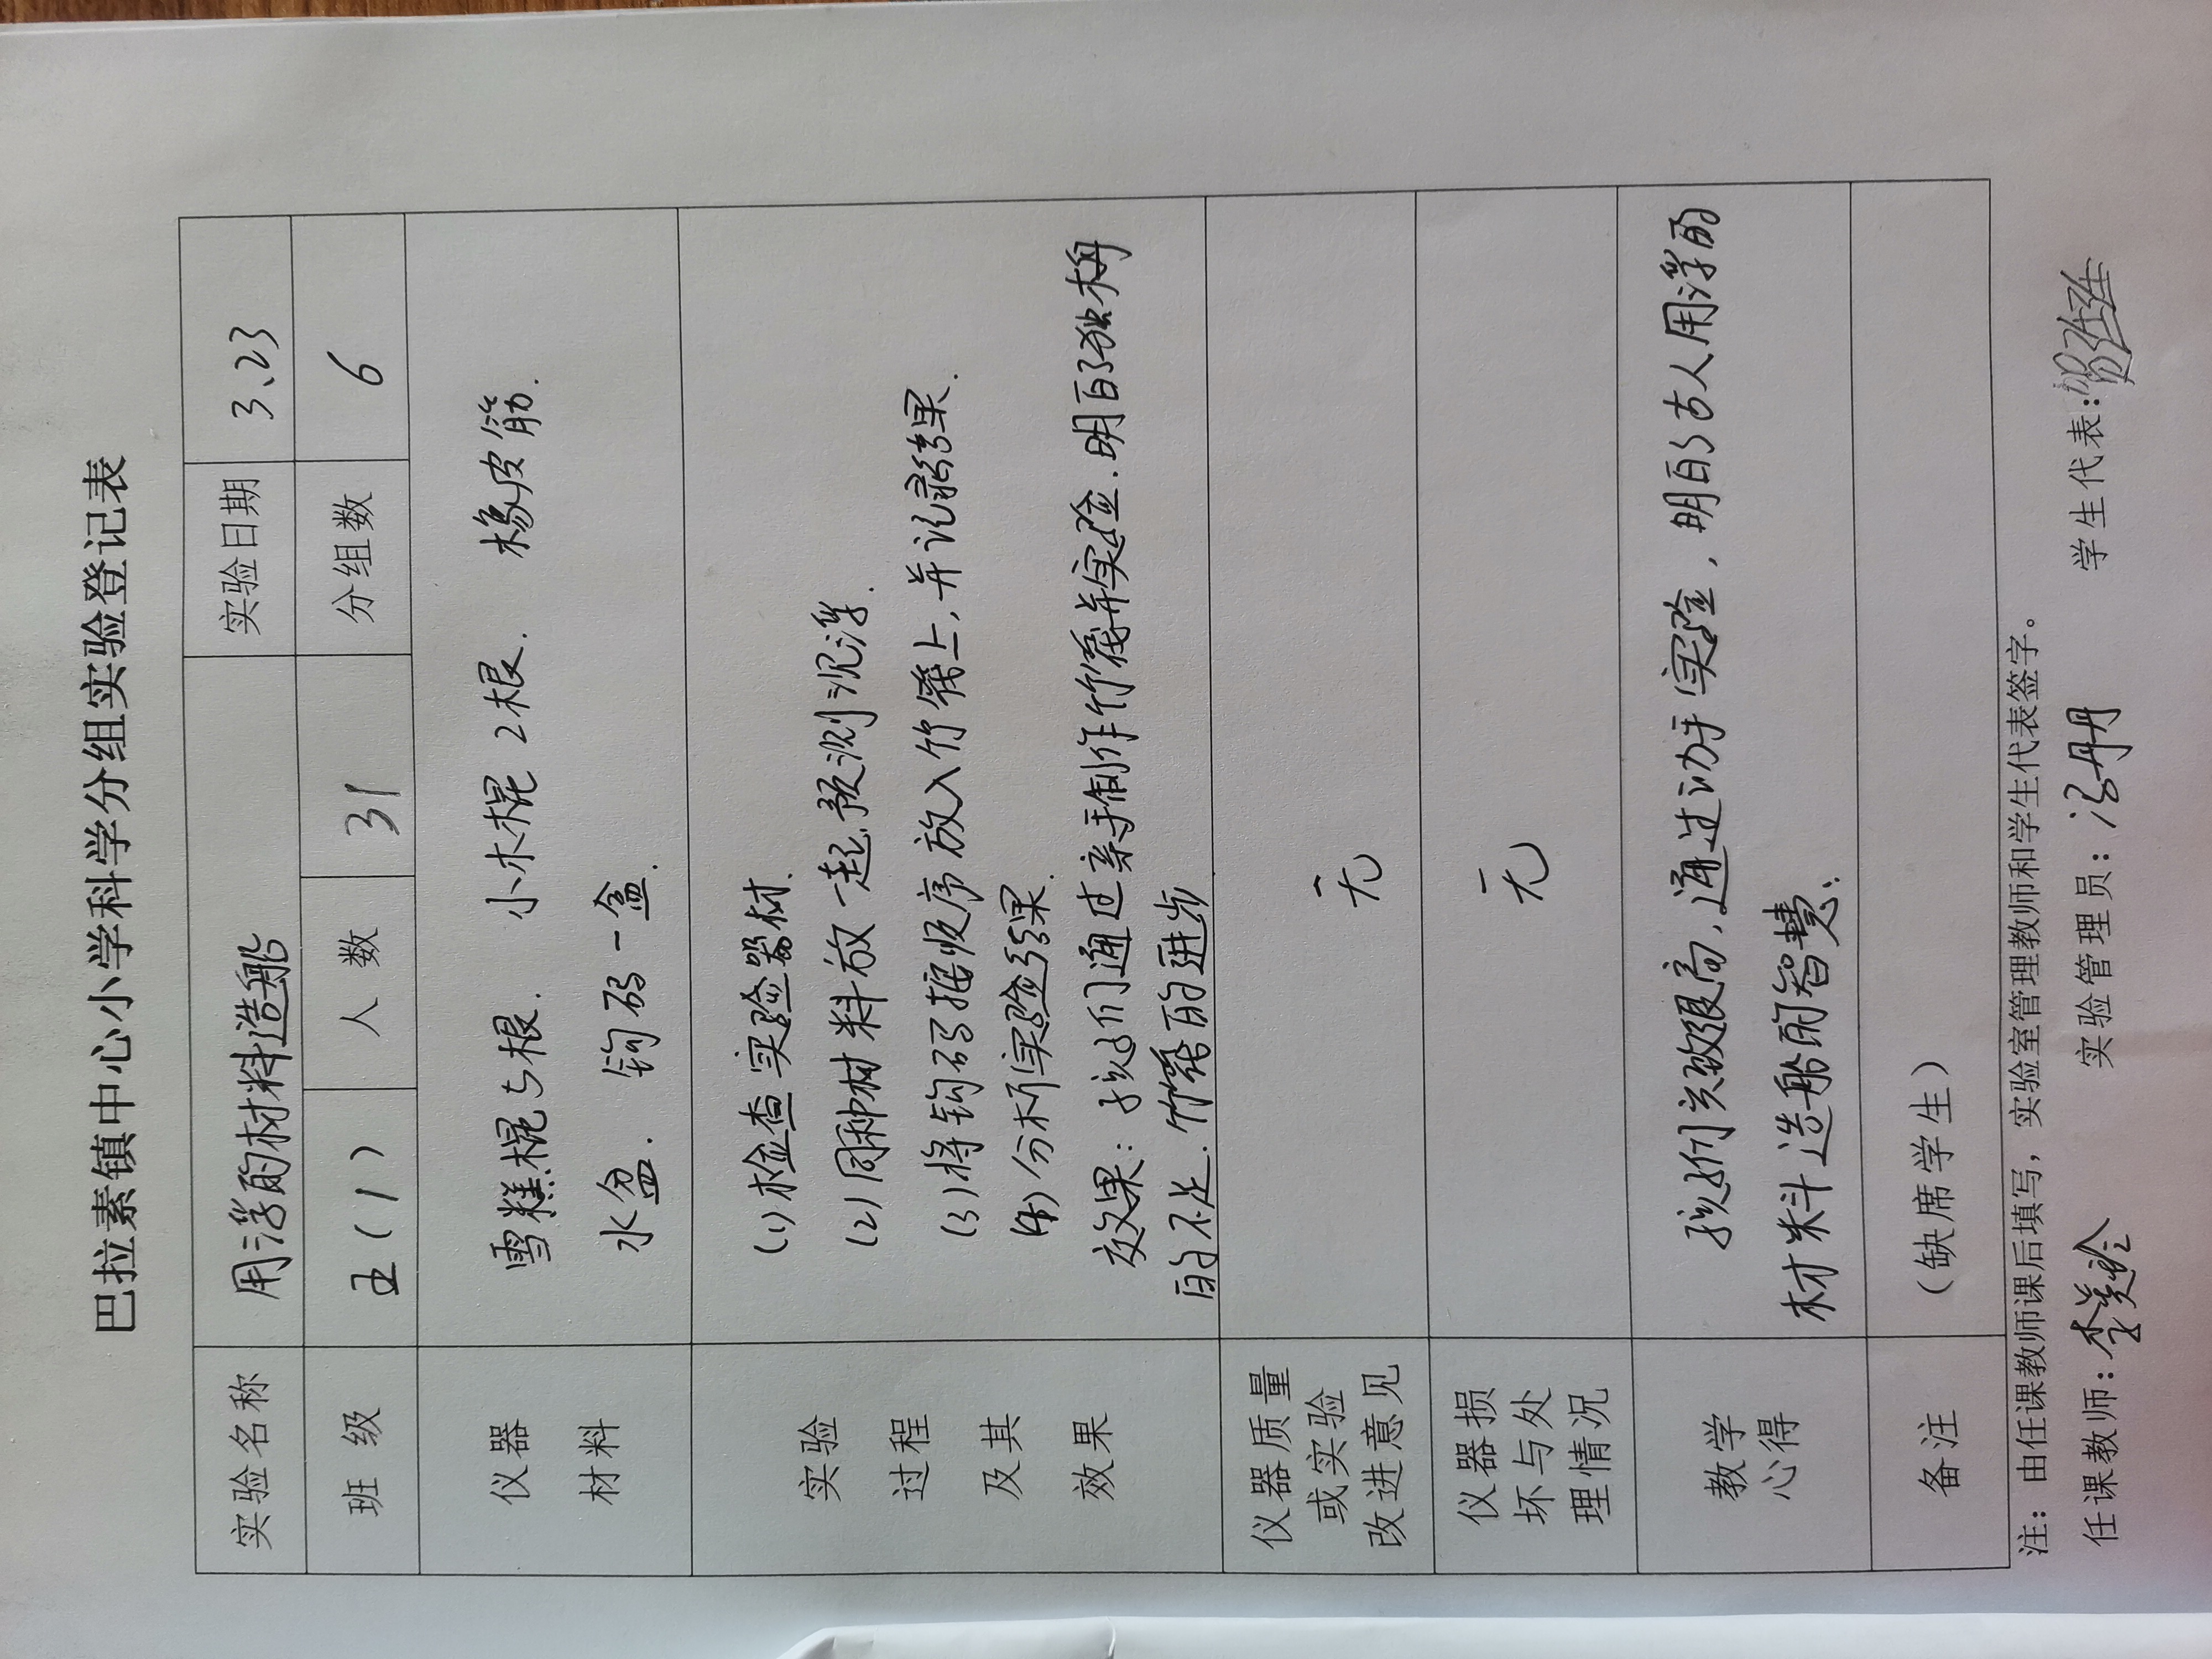 巴拉素镇中心小学科学分组实验登记表
实验名称 用浮的材料造船 实验日期 3、23
班级 五(1) 人数 31 分组数 6
仪器 雪糕棍5根. 小木棍2根. 橡皮筋.
材料 水盆. 钩码一盒.
实验
过程
及其
效果
(1)检查实验器材.
(2)同种材料放一起,预测沉浮.
(3)将钩码按顺序放入竹筏上,并记录结果.
(4)分析实验结果.
效果:孩子们通过亲手制作竹筏并实验.明白了独木舟
的不足.竹筏的进步
仪器质量
或实验
改进意见
无
仪器损
坏与处
理情况
无
教学
心得
孩子们兴致很高,通过动手实验,明白了古人用浮的
材料造船的智慧.
备注 (缺席学生)
注:由任课教师课后填写,实验室管理教师和学生代表签字。
任课教师: 实验管理员:冯丹丹 学生代表: